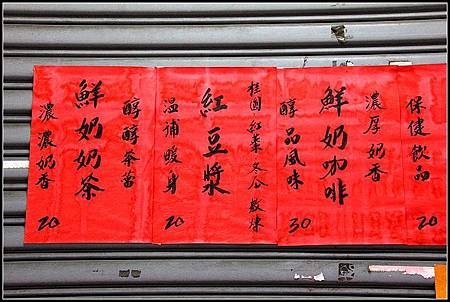 保健飲品
20
濃厚奶香
鮮奶咖啡
醇品風味
30
桂圓 紅棗 冬瓜
紅豆漿
温補暖身
20
醇醇茶
鮮奶奶茶
濃濃奶香
20